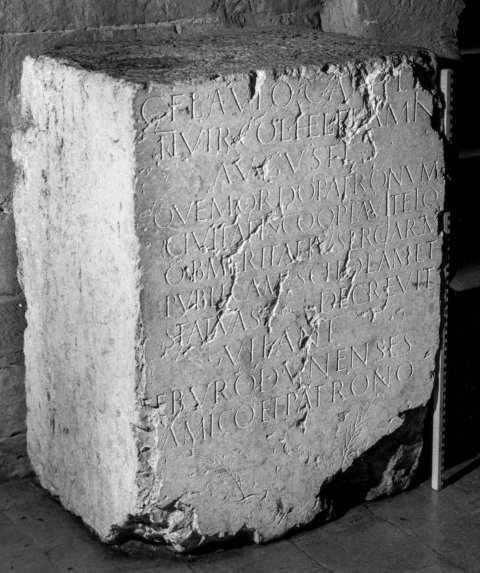 C FLAVIO CAMILL
II VIR COL HEL FLAMIN
AVGVST
QVEM ORDO PATRONVM
CIVITATIS COOPTAVIT
OB MERITA EIVS ERGA
PVBLICAM SCHOLAM ET
STATVAS DECREVIT
VIKANI
EBVRODVNENSES
AMICO ET PATRONO